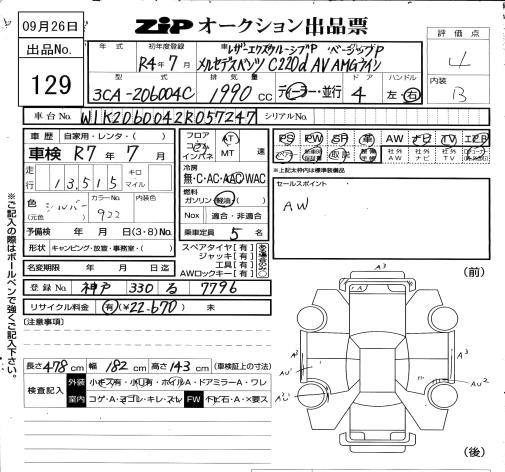 09月26日
ZIP オークション出品票
出品No.
129
年式 初年度登録 車名 レザーエクスクルーシブP ベーシックP
R4年7月 メルセデスベンツ C220d AV AMGライン
型式 排気量 ドア ハンドル
3CA-206004C 1990cc ディーラー・並行 4 左・右
評価点
4
内装
B
車台No. W1K2060042R057247 シリアルNo.
車歴 自家用・レンタ・( )
車検 R7年7月
走行 13,515 キロ マイル
色 (元色) シルバー カラーNo. 922 内装色
予備検 年 月 日(3・8)No.
形状 キャンピング・放置・事務室・( )
名変期限 年 月 日迄
フロア コラム インパネ AT MT 速
冷房
無・C・AC・AAC・WAC
燃料
ガソリン・軽油・( )
Nox 適合・非適合
乗車定員 5名
スペアタイヤ【有】
ジャッキ【有】
工具【有】
AWロックキー【有】
PS PW SR 革 AW ナビ TV エアB
社外AW 社外ナビ 社外TV
※上記太枠内は標準装備品
セールスポイント
AW
登録No. 神戸 330 る 7796
リサイクル料金 有(¥22,670) 未
【注意事項】
長さ478cm 幅182cm 高さ143cm (車検証上の寸法)
検査記入 外装 小キズ有・小凹有・ホイルA・ドアミラーA・ワレ
室内 コゲ・A・ヨゴレ・キレ・スレ FW 小ビ石・A・×要ス
※ご記入の際はボールペンで強くご記入下さい。
(前)
A3
A
A2
A3
AU1
AU2
(後)